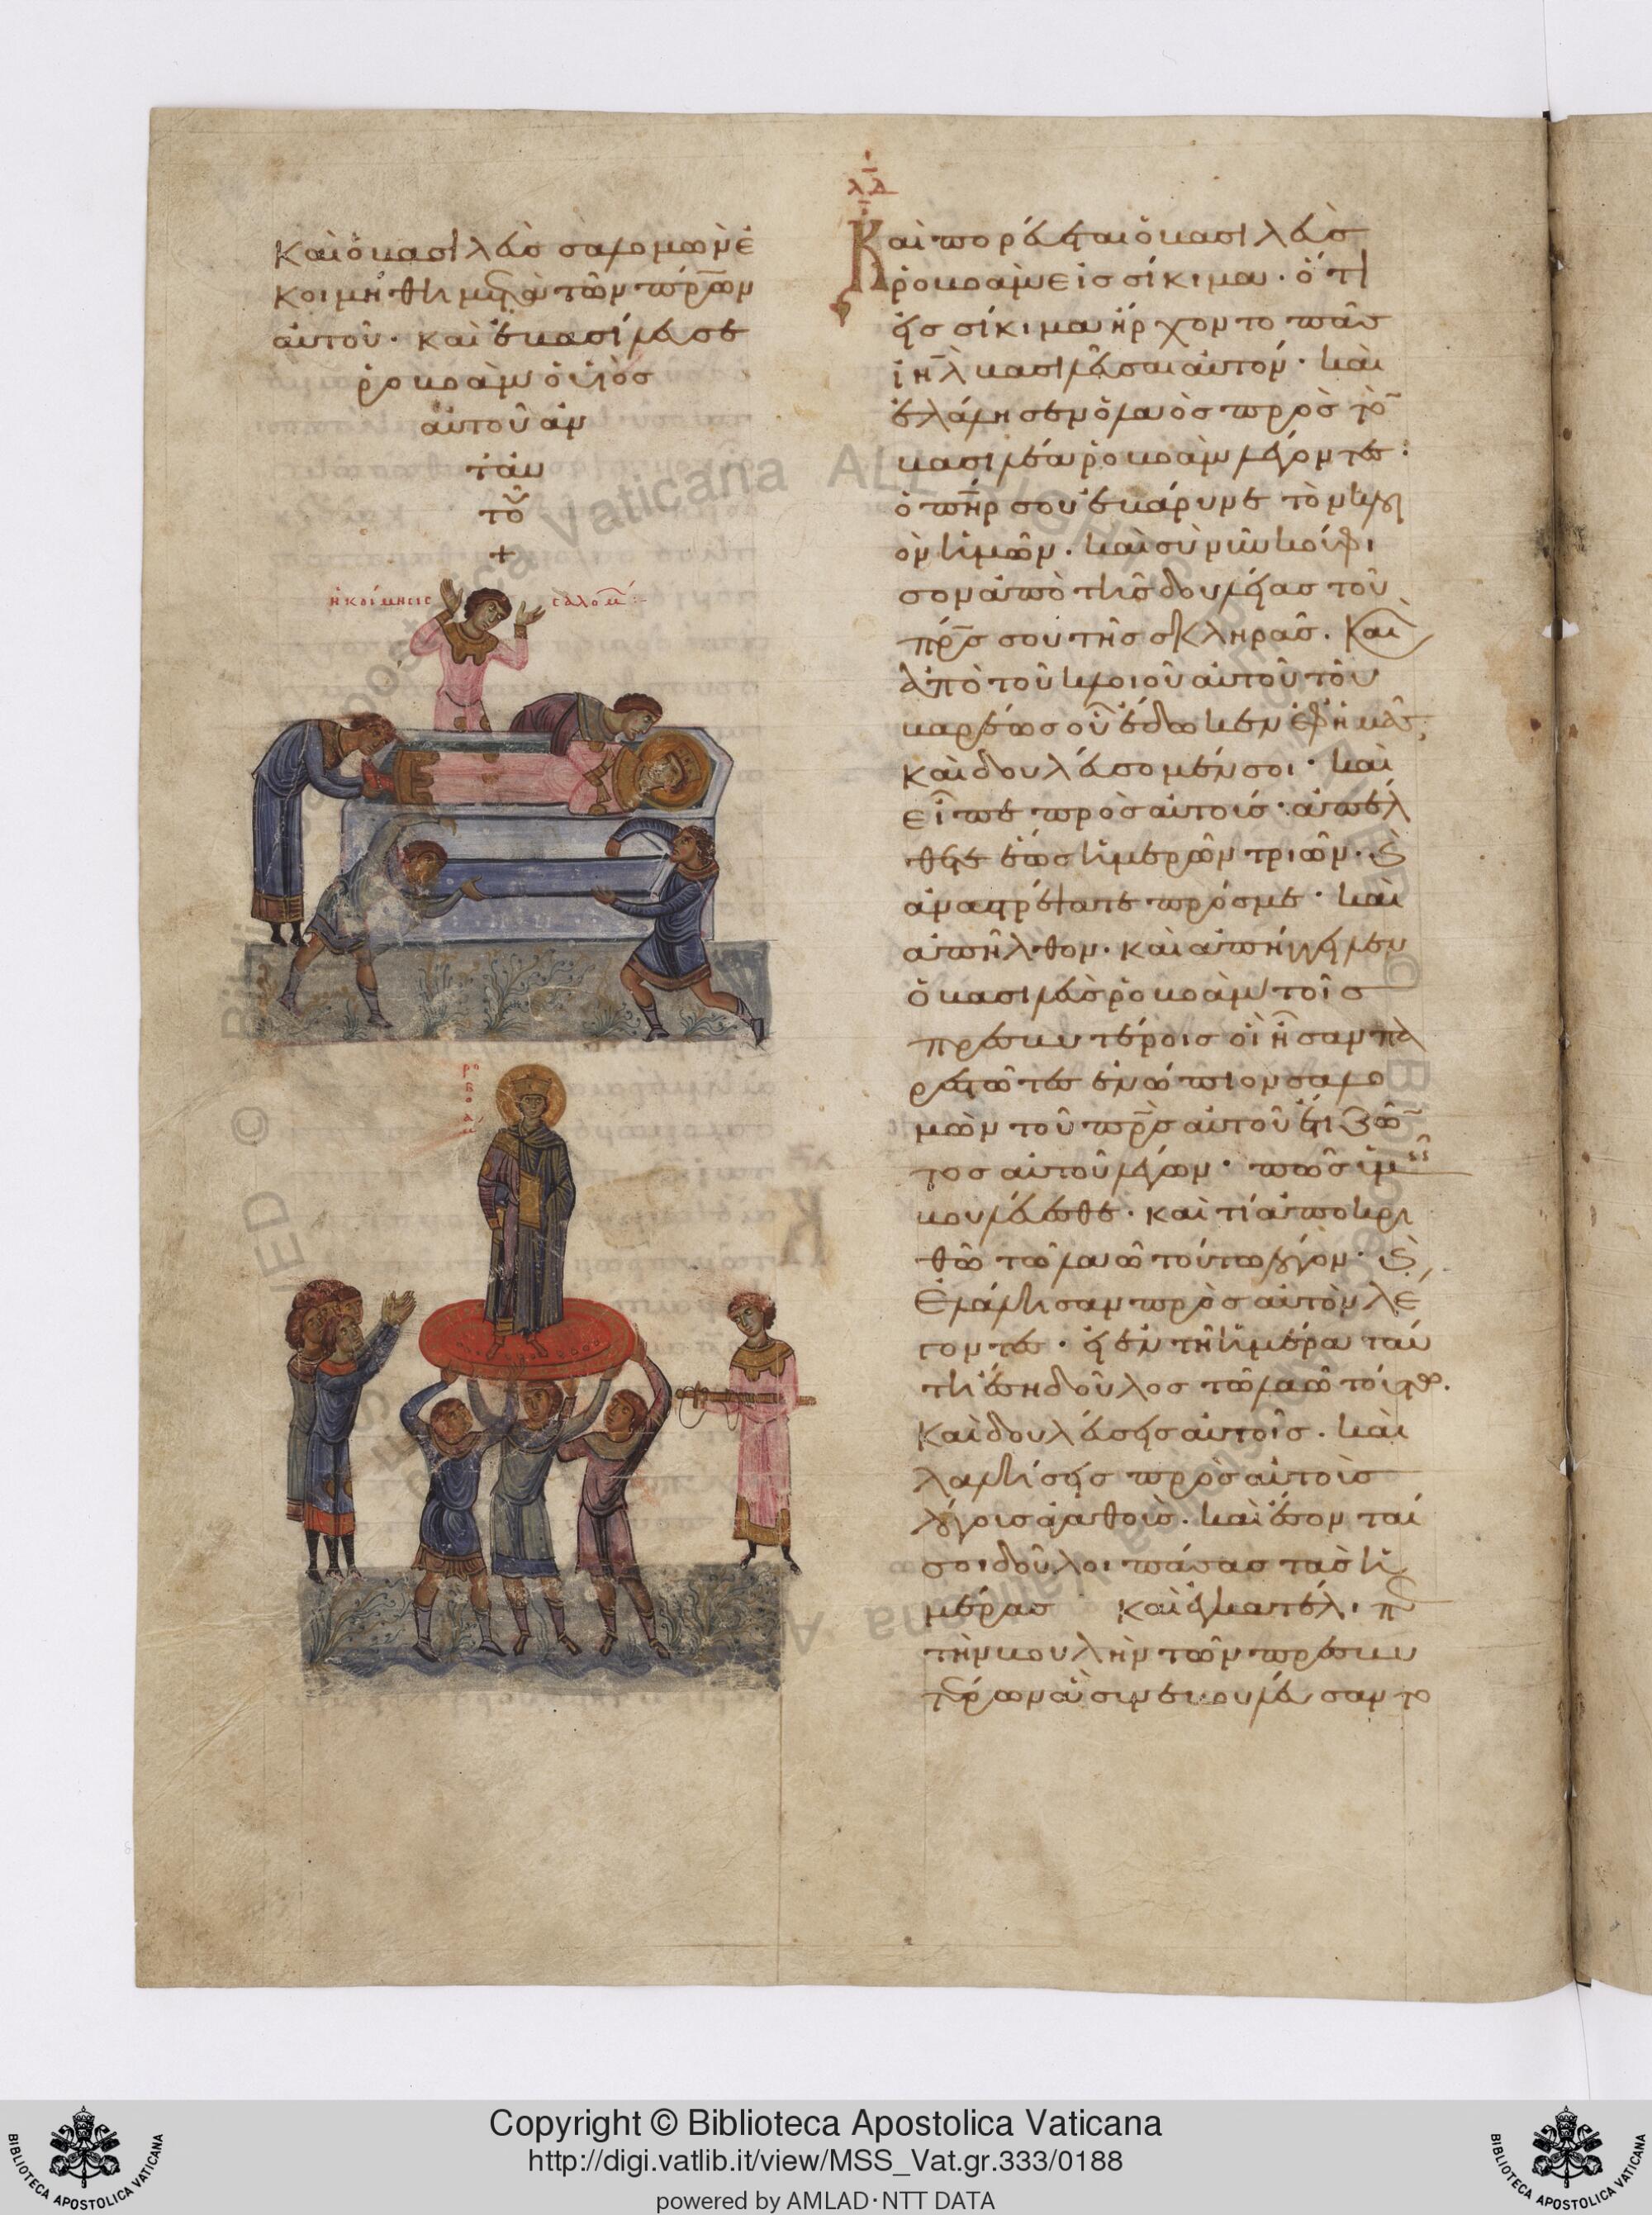 καὶ ὁ βασιλεὺς σαλομὼν ἐ
κοιμήθη μετὰ τῶν πρ̅ων
αὐτοῦ· καὶ ἐβασίλευσε
ῥοβοὰμ ὁ υἱὸς
αὐτοῦ ἀν
τ᾽ αὐ
τοῦ
+
ἡ κοίμησις σαλομ
ροβοάμ
λδ
Καὶ πορεύεται ὁ βασιλεὺς
ῥοβοὰμ εἰς σίκιμα· ὅτι
εἰς σίκιμα ἤρχοντο πᾶς
ιη̅λ βασιλεῦσαι αὐτόν· καὶ
ἐλάλησεν ὁ λαὸς πρὸς τὸ
βασιλέα ῥοβοὰμ λέγοντες·
ὁ πη̅ρ σου ἐβάρυνε τὸν κλοι
ὸν ἡμῶν· καὶ σὺ νῦν κούφι
σον ἀπὸ τῆς δουλείας τοῦ
πρ̅ς σου τῆς σκληρᾶς· καὶ
ἀπὸ τοῦ κλοιοῦ αὐτοῦ τοῦ
βαρέως οὗ ἔδωκεν ἐφ᾽ ἡμᾶς·
καὶ δουλεύσομέν σοι· καὶ
εἶπε πρὸς αὐτούς· ἀπέλ
θετε ἕως ἡμερῶν τριῶν· καὶ
ἀναστρέψατε πρός με· καὶ
ἀπῆλθον· καὶ ἀπήγγειλεν
ὁ βασιλεὺς ῥοβοὰμ τοῖς
πρεσβυτέροις οἳ ἦσαν πα
ρεστῶτες ἐνώπιον σαλο
μὼν τοῦ πρ̅ς αὐτοῦ ἔτι ζῶ
τος αὐτοῦ λέγων· πῶς ὑμεῖς
βουλεύεσθε· καὶ τί ἀποκρι
θῶ τῷ λαῷ τούτῳ λόγον· καὶ
ἐλάλησαν πρὸς αὐτὸν λέ
γοντες· εἰ ἐν τῇ ἡμέρα ταύ
τη ἔση δοῦλος τῷ λαῷ τούτω·
καὶ δουλεύσεις αὐτοῖς· καὶ
λαλήσεις πρὸς αὐτοὺς
λόγους ἀγαθούς· καὶ ἔσονταί
σοι δοῦλοι πάσας τὰς ἡ
μέρας καὶ ἐγκατέλιπε
τὴν βουλὴν τῶν πρεσβυ
τέρων ἃ συνεβουλεύσαντο
Copyright © Biblioteca Apostolica Vaticana
http://digi.vatlib.it/view/MSS_Vat.gr.333/0188
powered by AMLAD·NTT DATA
BIBLIOTECA APOSTOLICA VATICANA
BIBLIOTECA APOSTOLICA VATICANA